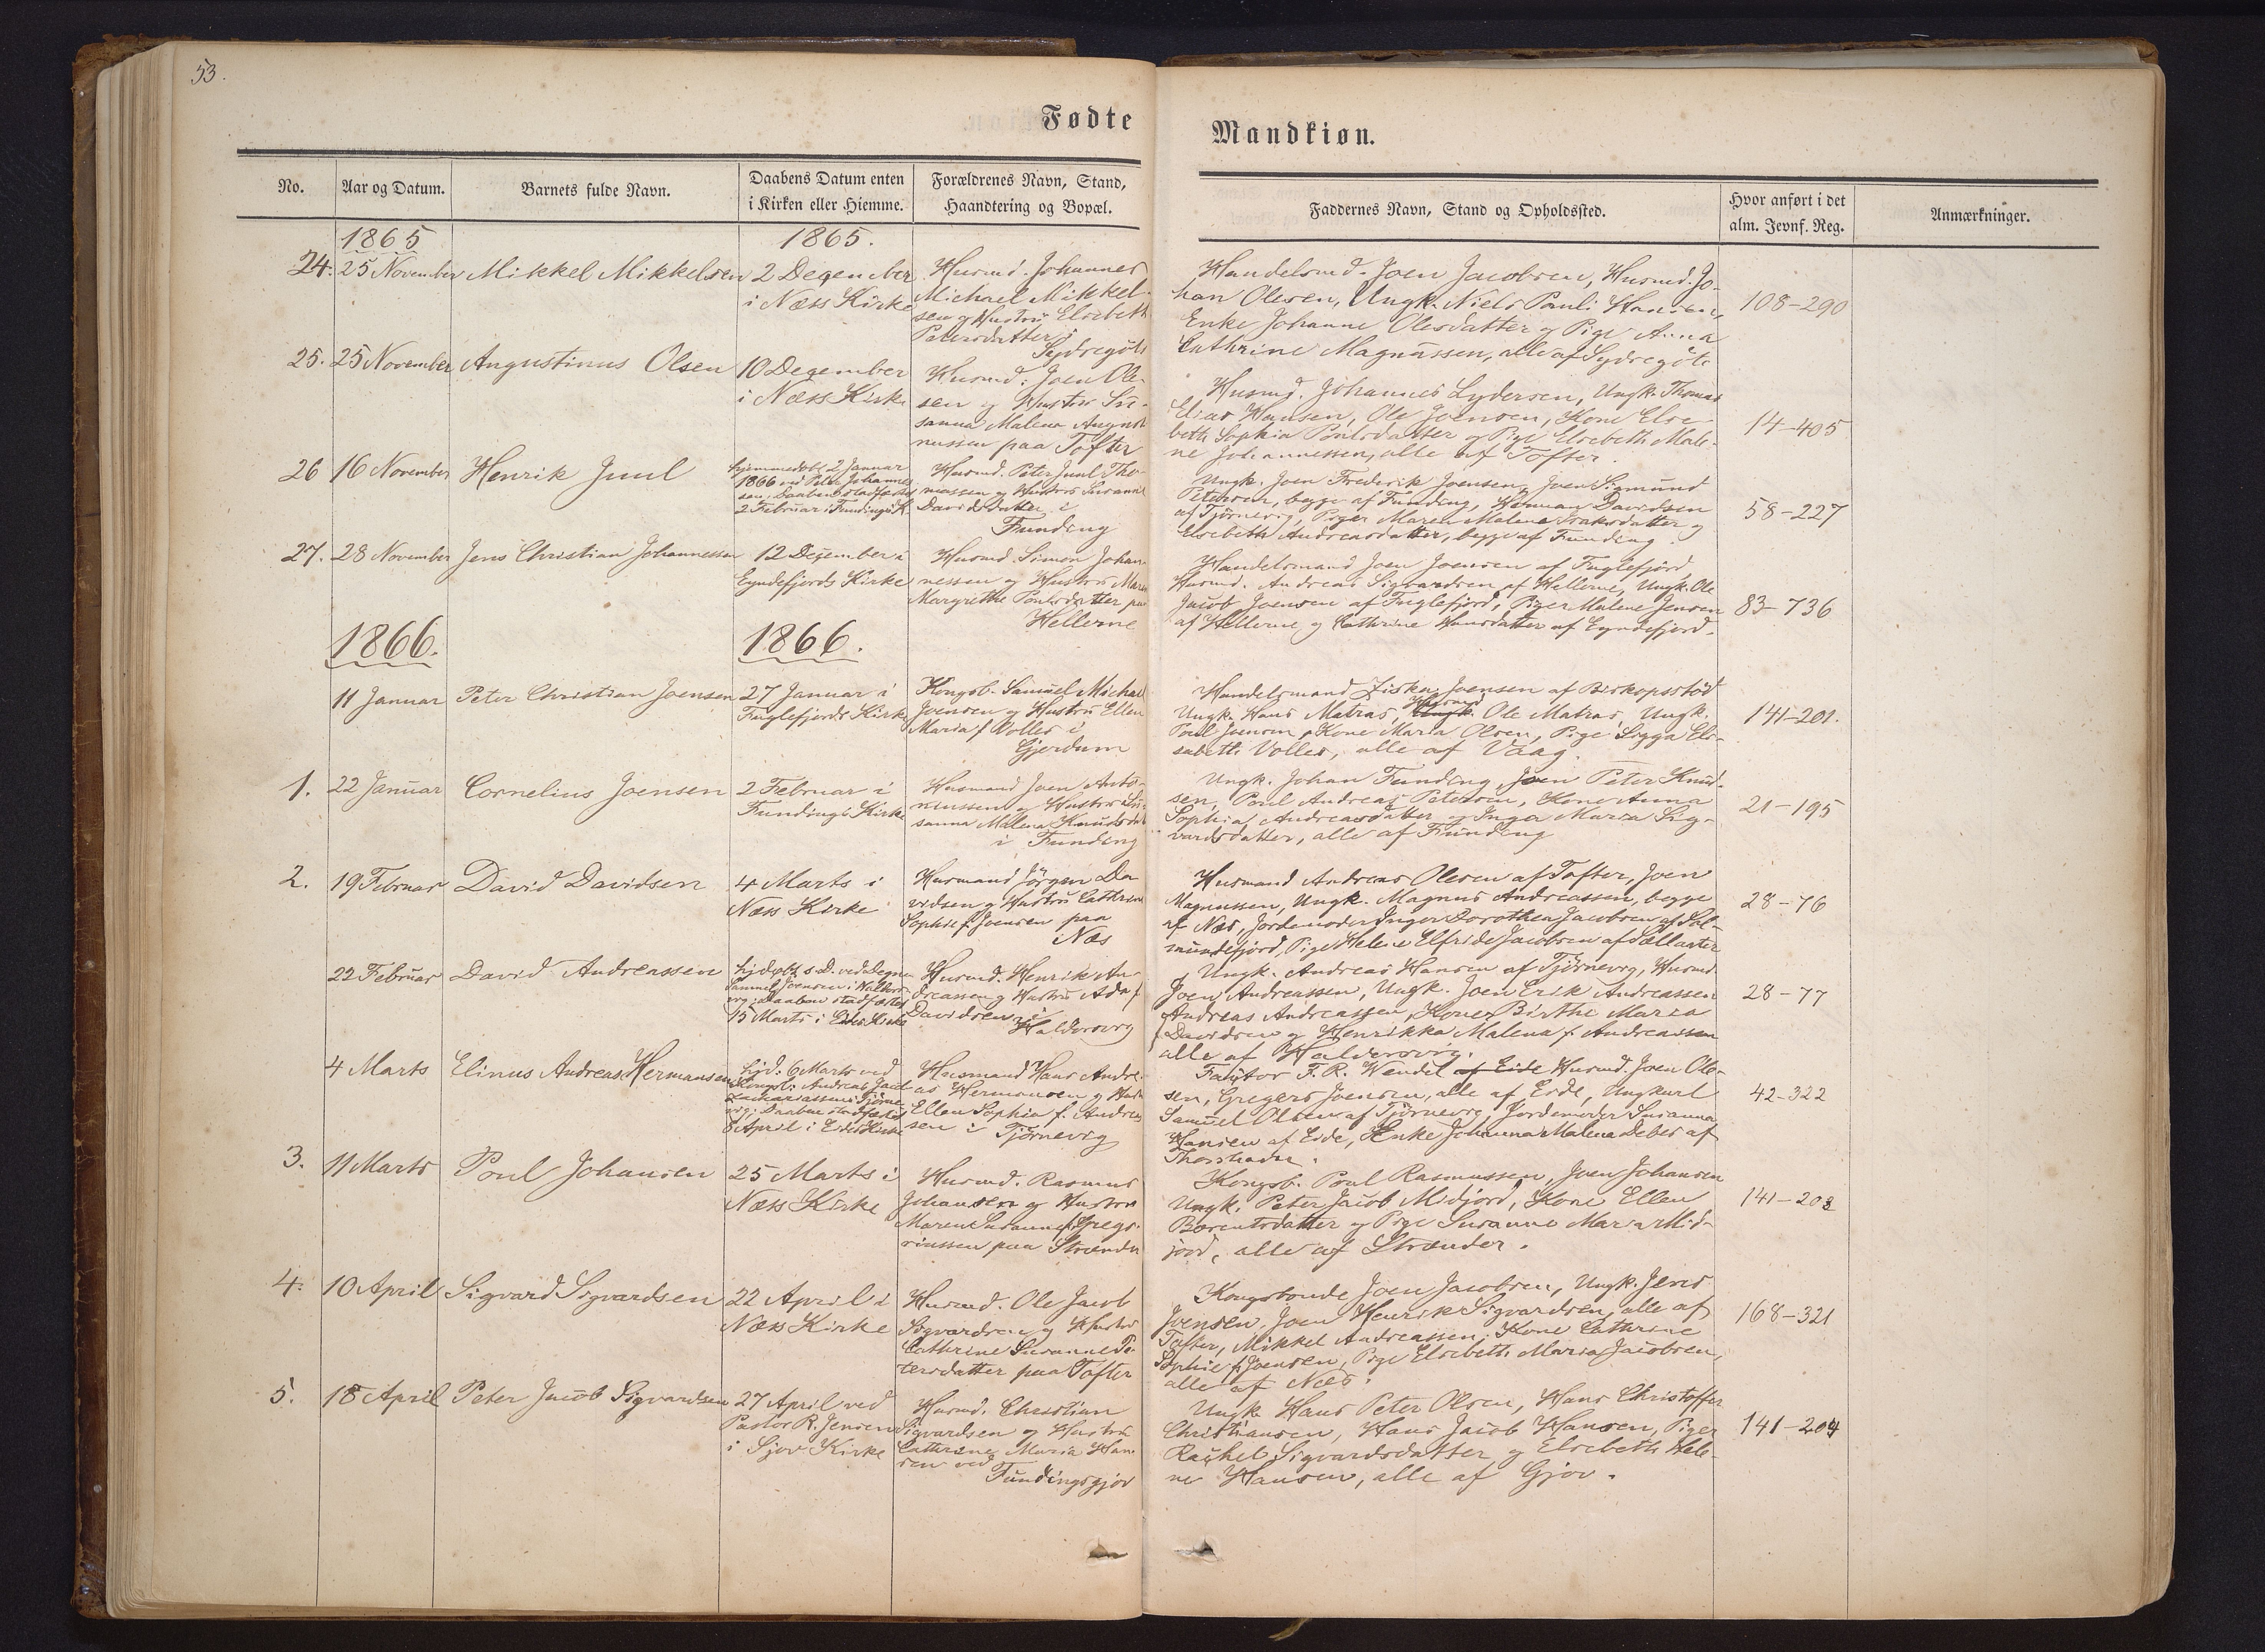 53.
Fødte
Mandkiøn.
No.
Aar og Datum.
Barnets fulde Navn.
Daabens Datum enten
i Kirken eller Hiemme.
Forældrenes Navn, Stand,
Haandtering og Bopæl.
Faddernes Navn, Stand og Opholdssted.
Hvor anført i det
alm. Jevnf. Reg.
Anmærkninger.
1865
1865.
24.
25 November
Mikkel Mikkelsen
2 December
i Næss Kirke
Husmd. Johannes
Michael Mikkel-
sen og Hustru Elsebeth
Petersdatter i
Sydregöte
Handelsmd. Joen Jacobsen, Husmd. Jo-
han Olesen, Ungk. Niels Pauli Hansen,
Enke Johanne Olesdatter og Pige Anna
Cathrine Magnussen, alle af Sydregöte
108-290
25.
25 November
Augustinus Olsen
10 December
i Næss Kirke
Husmd. Joen Ole-
sen og Hustru Su-
sanna Malena Augusti-
nussen paa Tofter
Husmd. Johannes Lydersen, Ungk. Thomas
Elias Hansen, Ole Joensen, Kone Else-
beth Sophia Poulsdatter og Pige Elsebeth Male-
ne Johannessen, alle af Tofter.
14-405
26
16 November
Henrik Juul
hjemmedøbt 2 Januar
1866 ved Peter Johannes-
sen, Daaben stadfæstet
2 Februar i Fundings K.
Husmd. Peter Juul Tho-
massen og Hustru Susanne
Davidsdatter i
Funding
Ungk. Joen Frederik Joensen, Joen Sigmund
Petersen, begge af Funding, Herman Davidsen
af Tjörnevig, Piger Maren Malene Isaksdatter og
Elsebeth Andreasdatter, begge af Funding.
58-227
27.
28 November
Jens Christian Johannessen
12 December i
Eyndefjords Kirke
Husmd. Simon Johan-
nessen og Hustru Maren
Margrethe Poulsdatter paa
Hellerne
Handelsmand Joen Joensen af Fuglefjord,
Husmd. Andreas Sigvardsen af Hellerne, Ungk. Ole
Jacob Joensen af Fuglefjord, Piger Malene Jensen
af Hellerne og Cathrine Hansdatter af Eyndefjord.
83-736
1866.
1866.
11 Januar
Peter Christian Joensen
27 Januar i
Fuglefjords Kirke
Kongsb. Samuel Michael
Joensen og Hustru Ellen
Maria f. Volles i
Gjerdum
Handelsmand Ziska Joensen af Biskopsstöd
Husmd
Ungk. Hans Matras, Ungk. Ole Matras, Ungk.
Poul Joensen, Kone Maria Olsen, Pige Sigga Eli-
sabeth Volles, alle af Vaag.
141-201.
1.
22 Januar
Cornelius Joensen
2 Februar i
Fundings Kirke
Husmand Joen Anto-
niussen og Hustru Su-
sanna Malena Knudsdat.
i Funding
Ungk. Johan Funding, Joen Peter Knud-
sen, Poul Andreas Petersen, Kone Anna
Sophia Andreasdatter og Inger Maria Sig-
vardsdatter, alle af Funding
21-195
2.
19 Februar
David Davidsen
4 Marts i
Næss Kirke
Husmand Jörgen Da-
vidsen og Hustru Cathrine
Sophie f. Joensen paa
Næs
Husmand Andreas Olesen af Tofter, Joen
Magnussen, Ungk. Magnus Andreassen, begge
af Næs, Jordemoder Inger Dorothea Jacobsen af Sal-
mundefjord, Pige Helene Elfride Jacobsen af Sellatre
28-76
22 Februar
David Andreassen
hjdøbt s.D. ved Degnen
Samuel Joensen i Haldors-
vig; Daaben stadfæstet
15 Marts i Eides Kirke
Husmd. Henrik An-
dreassen og Hustru Ada f.
Davidsen i
Haldorsvig
Ungk. Andreas Hansen af Tjörnevig, Husmd.
Joen Andreassen, Ungk. Joen Erik Andreassen
Andreas Andreassen, Koner Birthe Maria
Davidsen og Henrikka Malena f. Andreassen
alle af Haldorsvig.
28-77
4 Marts
Elinus Andreas Hermansen
hjd. 6 Marts ved
Kongsb. Andreas Jacob
Zachariassen i Tjörne-
vig; Daaben stadfæstet
8 April i Eides Kirke
Husmand Hans Andre-
as Hermansen og Hustru
Ellen Sophia f. Andreas-
sen i Tjörnevig
Faktor F. R. Wendel af Eide Husmd. Joen Ole-
sen, Gregers Joensen, alle af Eide, Ungkarl
Samuel Olsen af Tjörnevig, Jordemoder Susanna
Hansen af Eide, Enke Johanna Malena Debes af
Thorshavn.
42-322
3.
11 Marts
Poul Johansen
25 Marts i
Næss Kirke
Husmd. Rasmus
Johansen og Hustru
Maren Susanne f. Grego-
riussen paa Strænder
Kongsb. Poul Rasmussen, Joen Johansen
Ungk. Peter Jacob Midjord, Kone Ellen
Barentsdatter og Pige Susanne Maria Mid-
jord, alle af Strænder.
141-203
4.
10 April
Sigvard Sigvardsen
22 April i
Næss Kirke
Husmd. Ole Jacob
Sigvardsen og Hustru
Cathrine Susanne Pe-
tersdatter paa Tofter
Kongsbonde Joen Jacobsen, Ungk. Jens
Joensen, Joen Henrik Sigvardsen, alle af
Tofter, Mikkel Andreassen, Kone Cathrine
Sophie f. Joensen, Pige Elsebeth Maria Jacobsen,
alle af Næs.
168-321
5.
18 April
Peter Jacob Sigvardsen
27 April ved
Pastor R. Jensen
i Gjov Kirke
Husmd. Christian
Sigvardsen og Hustru
Cathrine Maria Han-
sen ved
Fundingsgjov
Ungk. Hans Peter Olsen, Hans Christoffer
Christiansen, Hans Jacob Hansen, Piger
Rachel Sigvardsdatter og Elsebeth Hele-
ne Hansen, alle af Gjov.
141-204